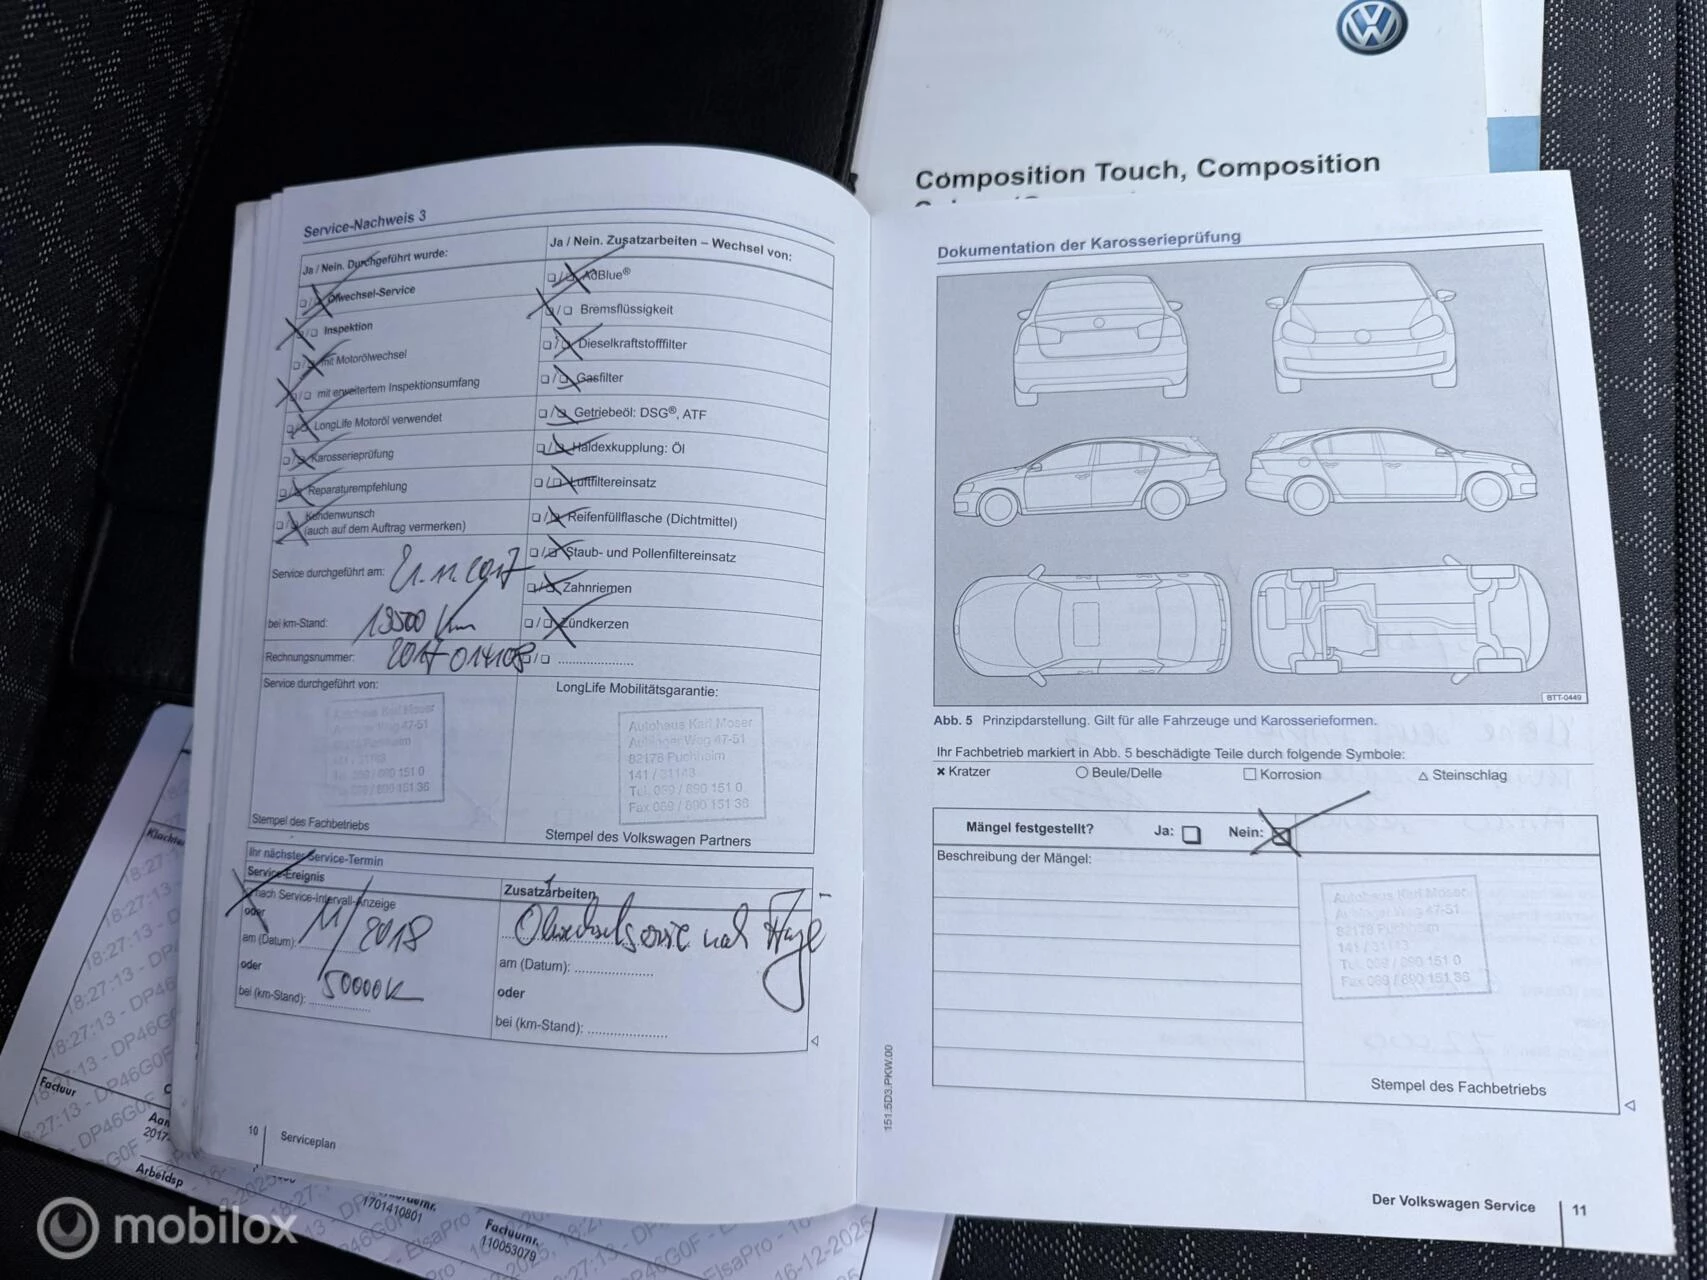 Composition Touch, Composition
Service-Nachweis 3
Ja / Nein. Durchgeführt wurde:
❏/❏ Ölwechsel-Service
❏/❏ Inspektion
❏/❏ mit Motorölwechsel
❏/❏ mit erweitertem Inspektionsumfang
❏/❏ LongLife Motoröl verwendet
❏/❏ Karosserieprüfung
❏/❏ Reparaturempfehlung
❏/❏ Kundenwunsch
(auch auf dem Auftrag vermerken)
Service durchgeführt am: 21.11.2017
bei km-Stand: 13500 km
Rechnungsnummer: 2017014108
Service durchgeführt von:
Autohaus Karl Moser
Aubinger Weg 47-51
82178 Puchheim
141 / 31143
Tel. 089 / 890 151 0
Fax 089 / 890 151 36
Stempel des Fachbetriebs
Ja / Nein. Zusatzarbeiten – Wechsel von:
❏/❏ AdBlue®
❏/❏ Bremsflüssigkeit
❏/❏ Dieselkraftstofffilter
❏/❏ Gasfilter
❏/❏ Getriebeöl: DSG®, ATF
❏/❏ Haldexkupplung: Öl
❏/❏ Luftfiltereinsatz
❏/❏ Reifenfüllflasche (Dichtmittel)
❏/❏ Staub- und Pollenfiltereinsatz
❏/❏ Zahnriemen
❏/❏ Zündkerzen
❏/❏ ......................
LongLife Mobilitätsgarantie:
Autohaus Karl Moser
Aubinger Weg 47-51
82178 Puchheim
141 / 31143
Tel. 089 / 890 151 0
Fax 089 / 890 151 36
Stempel des Volkswagen Partners
Ihr nächster Service-Termin
Service-Ereignis
nach Service-Intervall-Anzeige
oder
am (Datum): 11/2018
oder
bei (km-Stand): 50000 K
Zusatzarbeiten
am (Datum): ......................
oder
bei (km-Stand): ......................
10 Serviceplan
Dokumentation der Karosserieprüfung
BTT-0449
Abb. 5 Prinzipdarstellung. Gilt für alle Fahrzeuge und Karosserieformen.
Ihr Fachbetrieb markiert in Abb. 5 beschädigte Teile durch folgende Symbole:
× Kratzer ○ Beule/Delle □ Korrosion △ Steinschlag
Mängel festgestellt? Ja: ❏ Nein: ❏
Beschreibung der Mängel:
Autohaus Karl Moser
Aubinger Weg 47-51
82178 Puchheim
141 / 31143
Tel. 089 / 890 151 0
Fax 089 / 890 151 36
Stempel des Fachbetriebs
151.5D3.PKW.00
Der Volkswagen Service 11
Factuur
Arbeidsp
1701410801
Factuurnr.
110053079
16-12-2025
mobilox